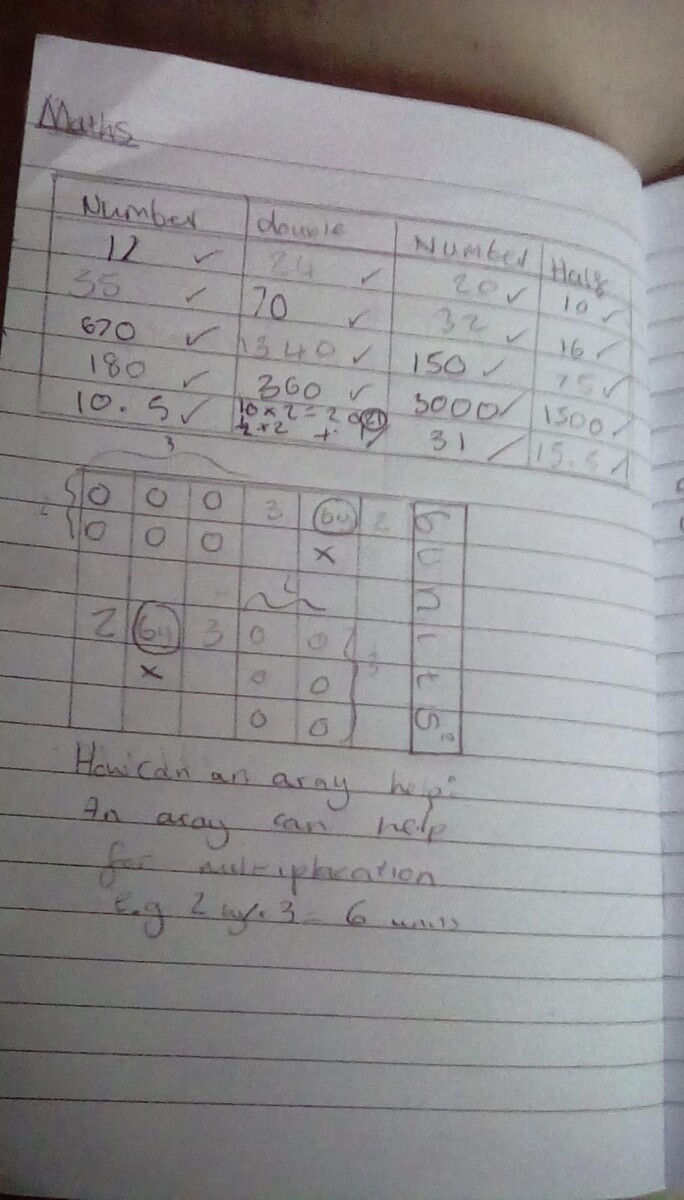 Maths
Number double Number Half
12 ✓ 24 ✓ 20 ✓ 10 ✓
35 ✓ 70 ✓ 32 ✓ 16 ✓
670 ✓ 1340 ✓ 150 ✓ 75 ✓
180 ✓ 360 ✓ 3000 ✓ 1500 ✓
10.5 ✓ 10 x 2 = 20 21 31 ✓ 15.5 ✓
½ x 2 + 1
3
0 0 0 3 by 2 6
0 0 0 x u
2 n
2 by 3 0 0 3 i
x 0 0 t
0 0 s
How can an aray help?
An aray can help
for multiplacation
E.g 2 by 3 = 6 units